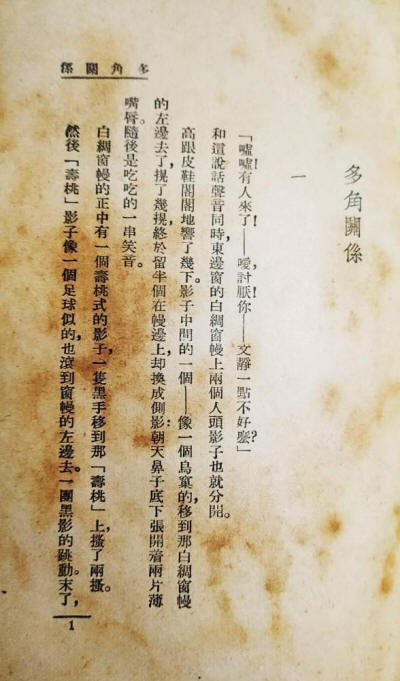 多角關係
多角關係
一
「噓噓!有人來了!——噯,討厭!你——文靜一點不好麼?」
和這說話聲音同時,東邊窗的白綢窗幔上兩個人頭影子也就分開。
高跟皮鞋閣閣地響了幾下。影子中間的一個——像一個鳥窠的,移到那白綢窗幔
的左邊去了,了幾,終於留半個在幔邊上,却換成側影:朝天鼻子底下張開着兩片薄
嘴脣。隨後是吃吃的一串笑音。
白綢窗幔的正中有一個壽桃式的影子,一隻黑手移到那「壽桃」上,搔了兩搔。
然後「壽桃」影子像一個足球似的,也滾到窗幔的左邊去。一團黑影的跳動。末了,
1